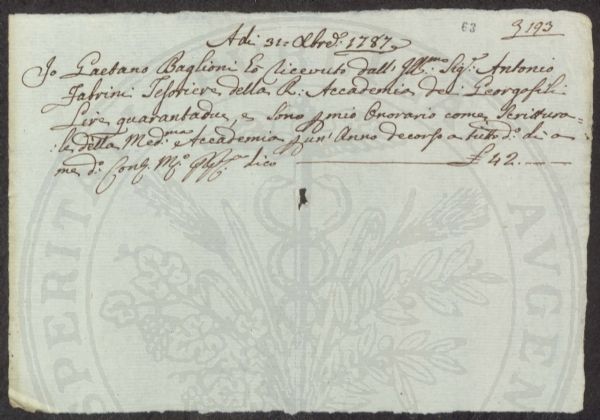 63
3193
Adi 31: Xbre: 1787.
Io Gaetano Baglioni hò ricevuto dall' Ill:mo Sig:r Antonio
Fabrini Tesoriere della R: Accademia de Georgofili
Lire quarantadue, e sono p mio Onorario come Scrittura=
le della Med:ma Accademia p un' Anno decorso a tutto d:o dì a
me d:o Con: dico £ 42.
PROSPERITATI AUGEN